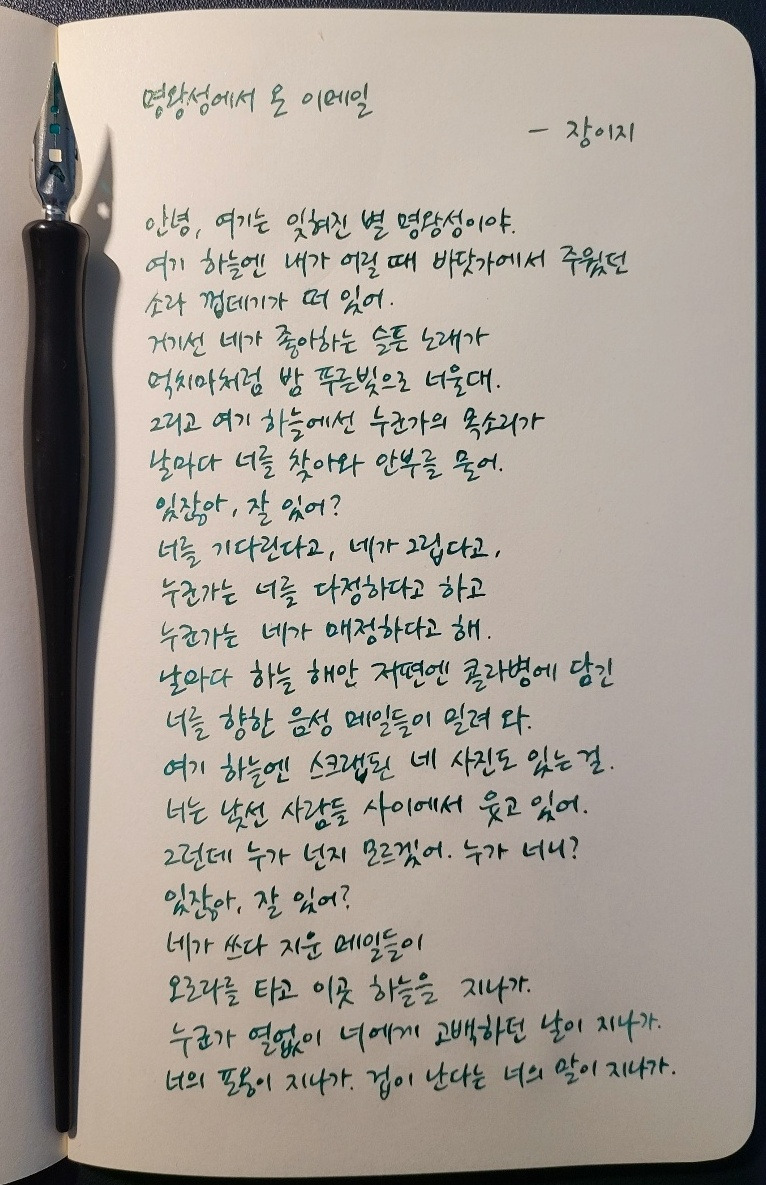 명왕성에서 온 이메일
- 장이지
안녕, 여기는 잊혀진 별 명왕성이야.
여기 하늘엔 내가 어릴 때 바닷가에서 주웠던
소라 껍데기가 떠 있어.
거기선 네가 좋아하는 슬픈 노래가
먹치마처럼 밤 푸른빛으로 너울대.
그리고 여기 하늘에선 누군가의 목소리가
날마다 너를 찾아와 안부를 물어.
있잖아, 잘 있어?
너를 기다린다고, 네가 그립다고,
누군가는 너를 다정하다고 하고
누군가는 네가 매정하다고 해.
날마다 하늘 해안 저편엔 콜라병에 담긴
너를 향한 음성 메일들이 밀려 와.
여기 하늘엔 스크랩된 네 사진도 있는 걸.
너는 낯선 사람들 사이에서 웃고 있어.
그런데 누가 넌지 모르겠어. 누가 너니?
있잖아, 잘 있어?
네가 쓰다 지운 메일들이
오로라를 타고 이곳 하늘을 지나가.
누군가 열없이 너에게 고백하던 날이 지나가.
너의 포옹이 지나가. 겁이 난다는 너의 말이 지나가.